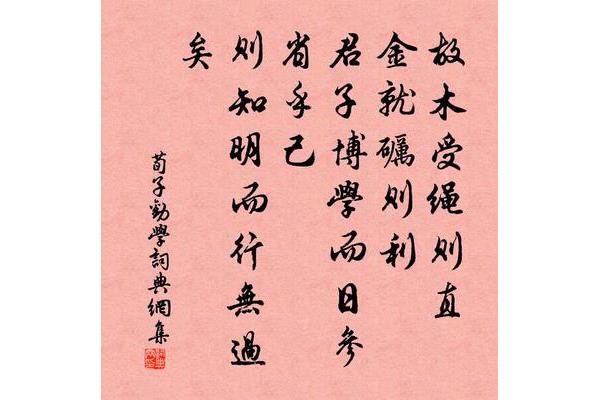 故木受绳则直
金就礪则利
君子博學而日参
省乎己
则知明而行無過
矣
荀子勸學詞典網集